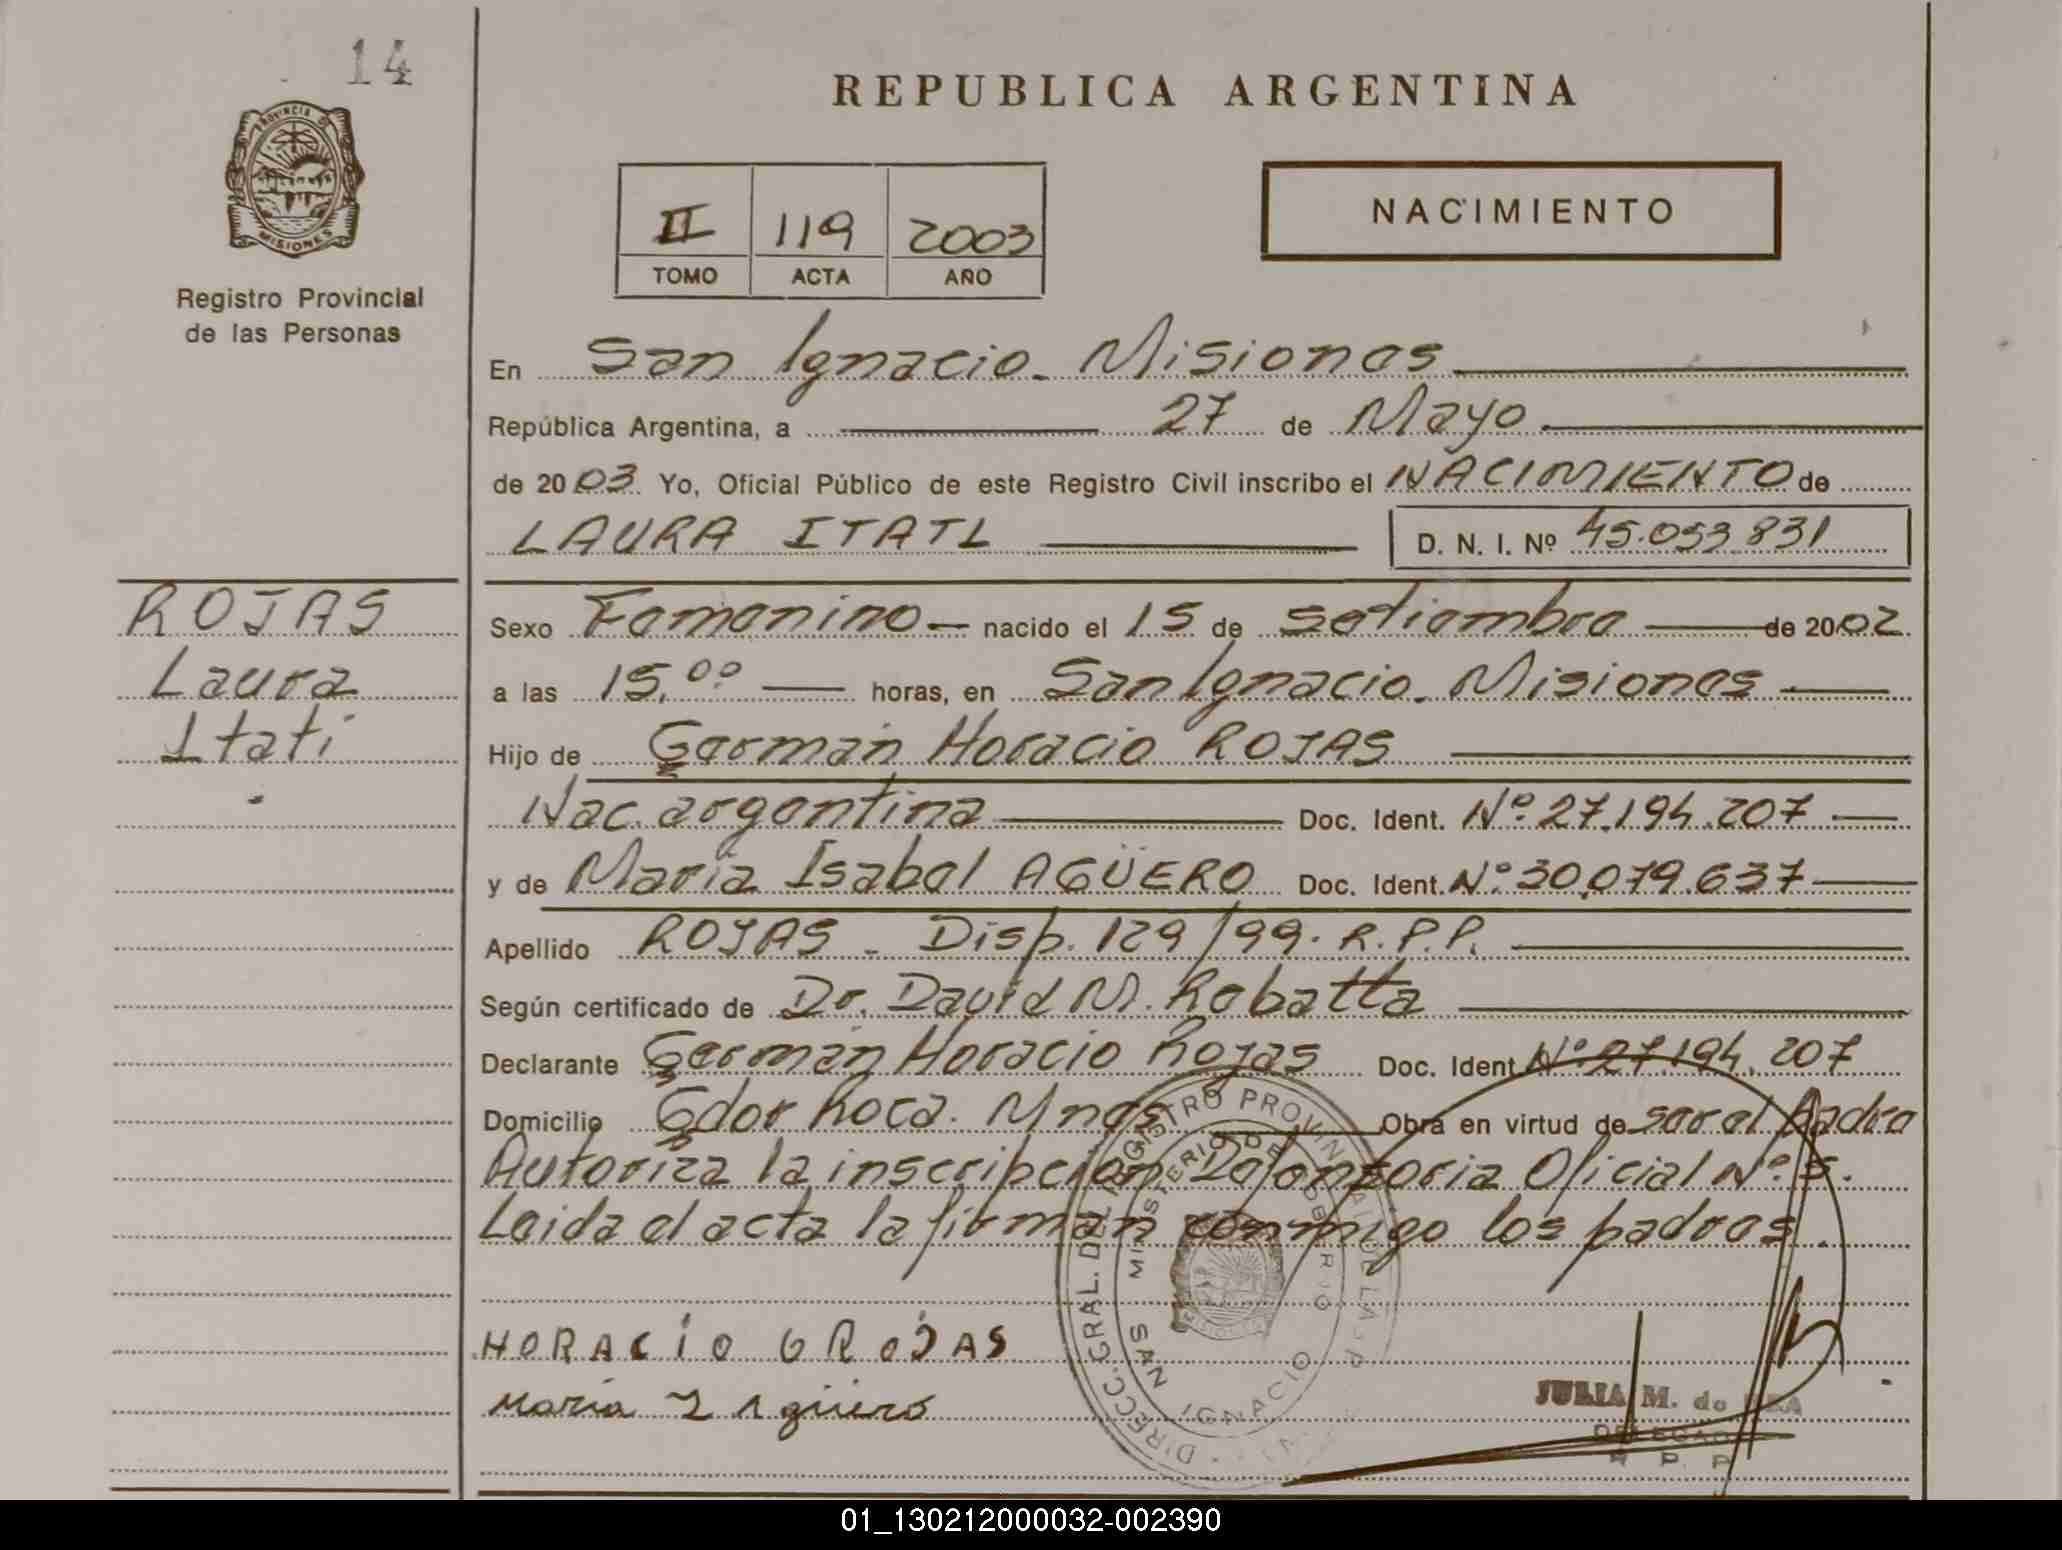 14
REPUBLICA ARGENTINA
PROVINCIA D
MISIONES
Registro Provincial
de las Personas
II 119 2003
TOMO ACTA AÑO
NACIMIENTO
En San Ignacio. Misiones
República Argentina, a 27 de Mayo
de 2003 Yo, Oficial Público de este Registro Civil inscribo el NACIMIENTO de
LAURA ITATI D. N. I. Nº 45.053.831
ROJAS
Laura
Itatí
Sexo Femenino nacido el 15 de setiembre de 2002
a las 15.00 horas, en San Ignacio. Misiones
Hijo de Germán Horacio ROJAS
Nac. argentina Doc. Ident. Nº 27.194.207
y de María Isabel AGÜERO Doc. Ident. Nº 30.079.637
Apellido ROJAS - Disp. 129/99. R.P.P.
Según certificado de Dr. David M. Robatta
Declarante Germán Horacio Rojas Doc. Ident. Nº 27.194.207
Domicilio Gdor Roca. Mnes Obra en virtud de ser el padre
Autoriza la inscripción Defensoria Oficial Nº 5.
Leida el acta la firman conmigo los padres.
HORACIO G ROJAS
María I Agüero
DIRECC. GRAL. DEL REGISTRO PROVINCIAL DE LAS P
MINISTERIO DE GOBIERNO
SAN IGNACIO
JULIA M. de
R. P. P.
01_130212000032-002390